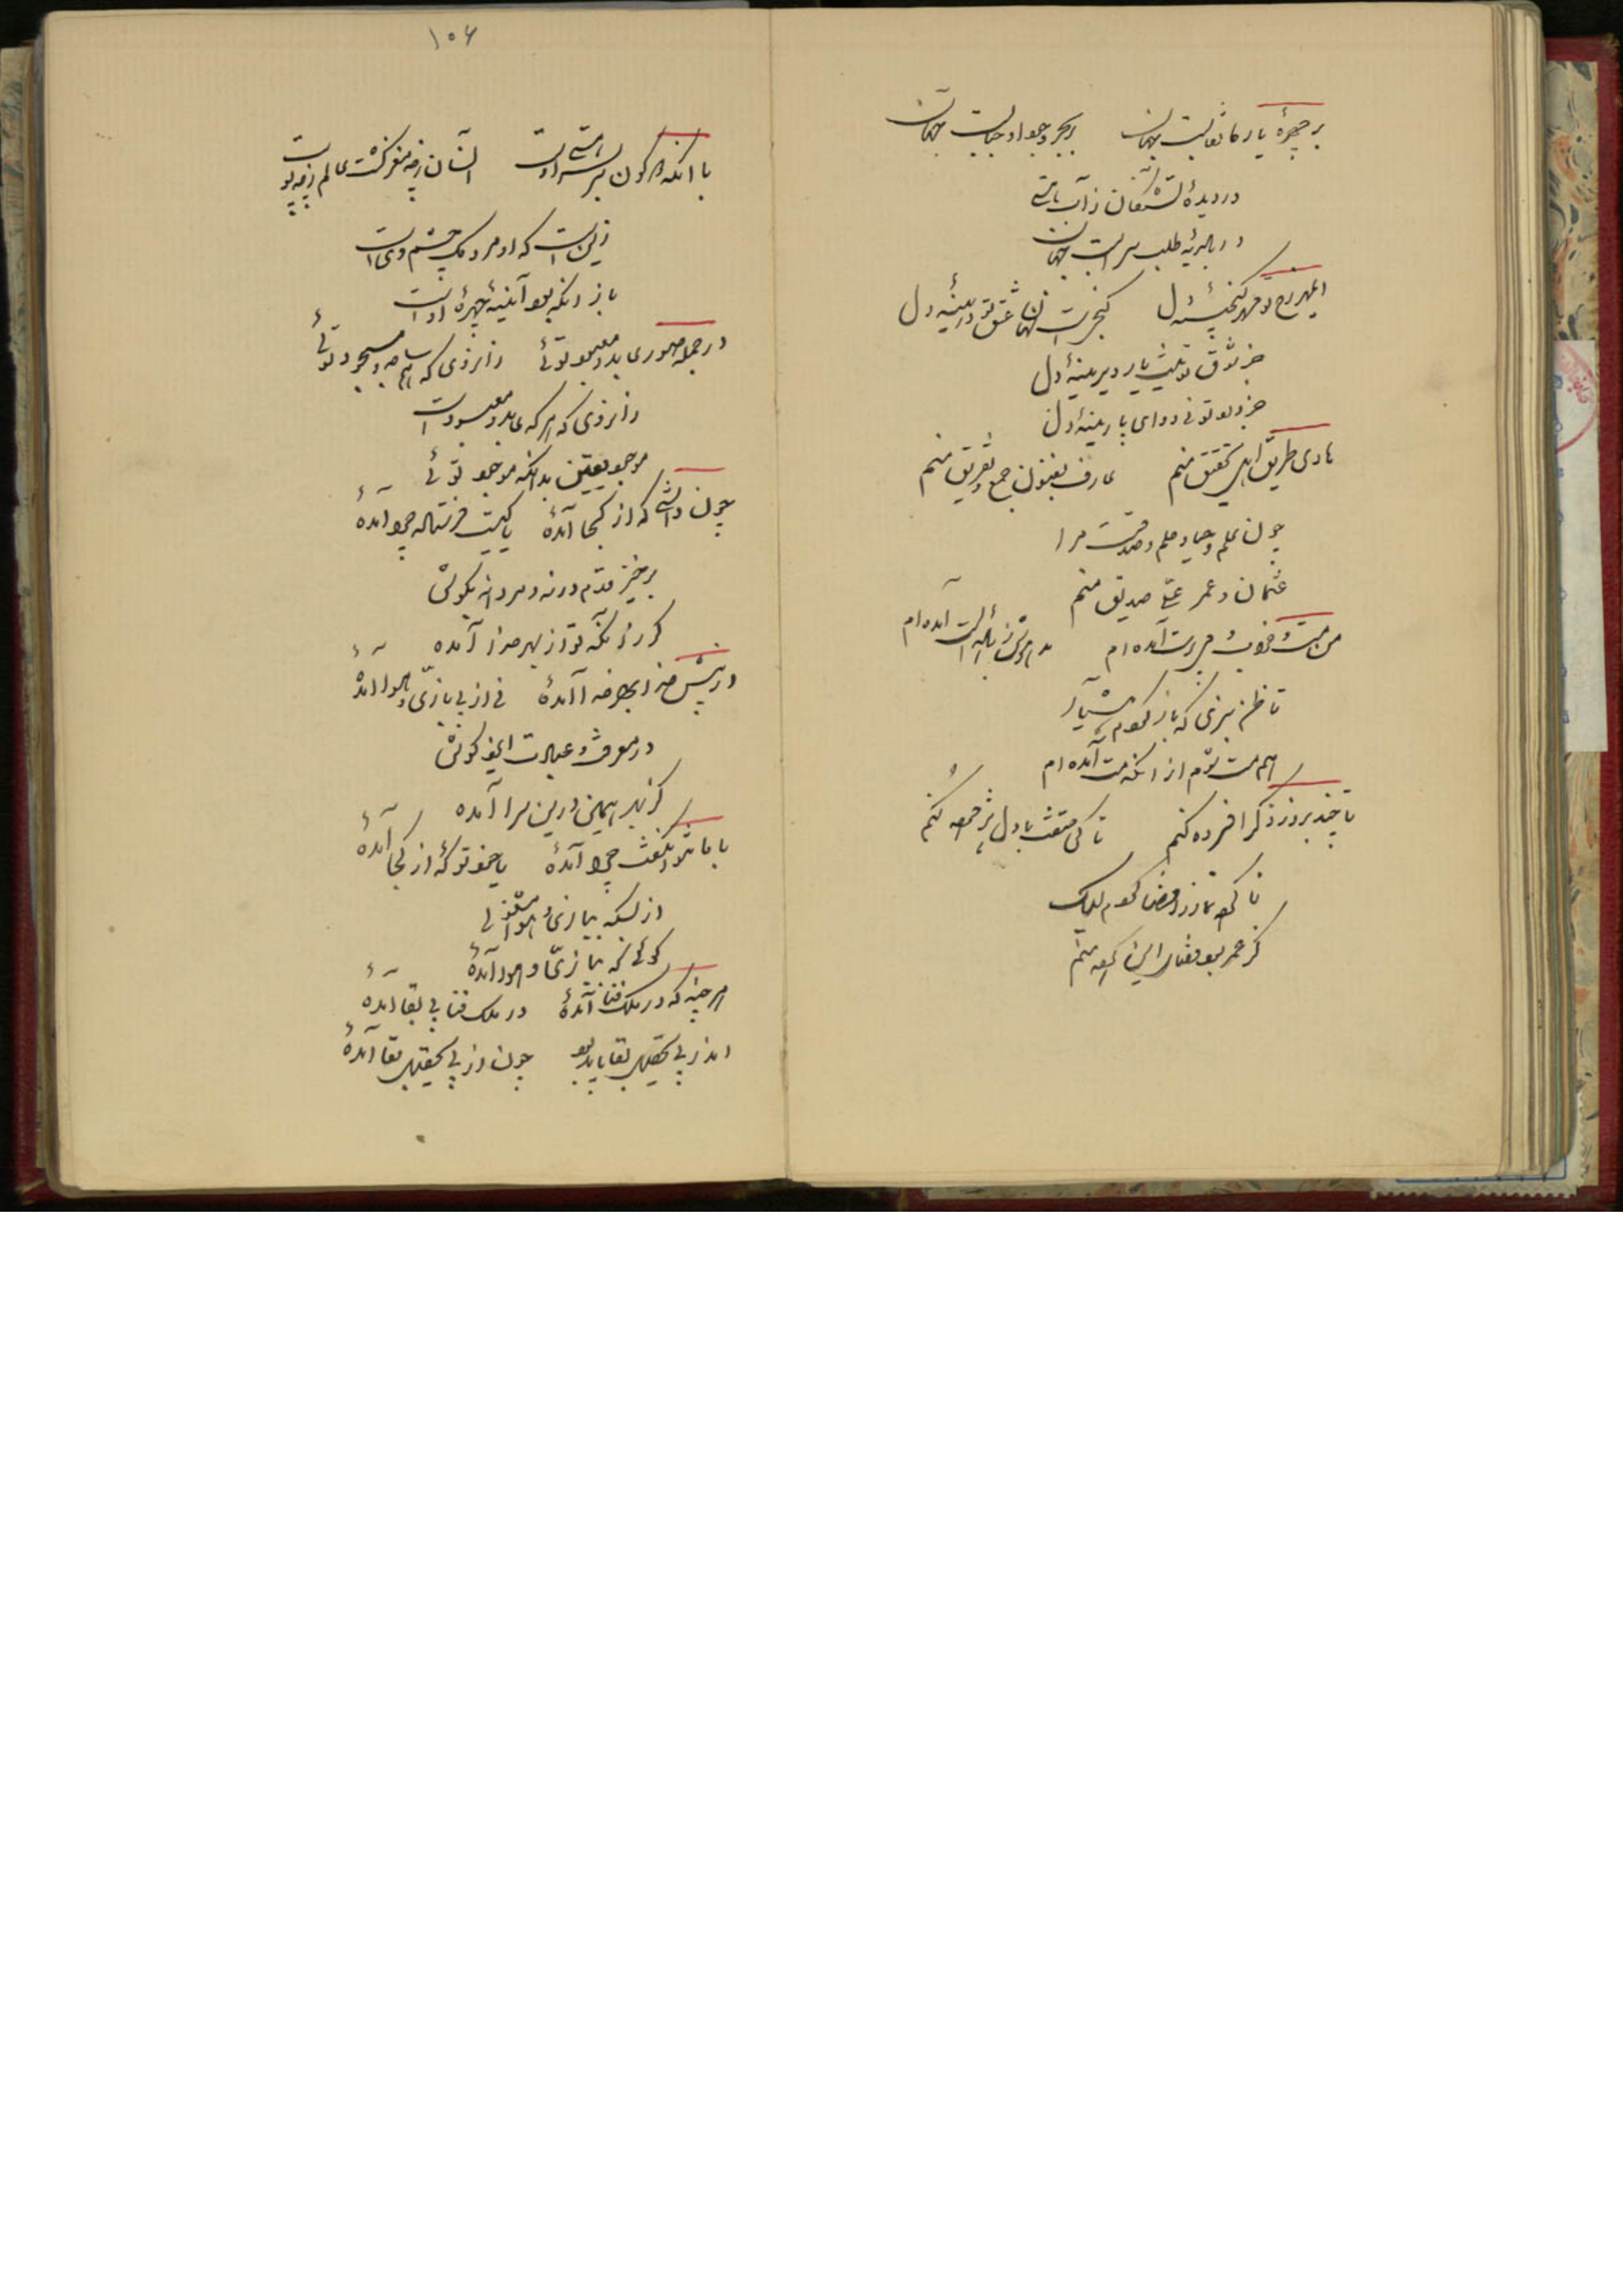 بر چهرهٔ یار ما نقابست جهان بر بحر وجود او حبابست جهان
در دیدهٔ تشنگان ز آب
در بادیهٔ طلب سرابست جهان
ای مهر رخ تو مهر گنجینهٔ دل گنجیست نهان عشق تو در سینهٔ دل
جز شوق تو نیست یار دیرینهٔ دل
جز درد تو نی دوای پارینهٔ دل
هادی طریق اهل تحقیق منم عارف بفنون جمع و تفریق منم
چون علم و حیا و حلم و صدقست مرا
عثمان و عمر علی صدیق منم
من مست و خراب و می پرست آمده ام مدهوش ز بادهٔ الست آمده ام
تا ظن نبری که باز گردم هشیار
هم مست روم از آنکه مست آمده ام
تا چند بروز ذکر افسرده کنم تا کی بادل پژمرده کنم
تا کرده نماز را قضا کردم لیک
کز عمر بود قضای این کرده منم
۱۰۶
با آنکه دو کون هستی اوست انسان ز چه مغز گشت عالم ز چه پوست
زینست که او مردمک چشم ویست
باز آنکه بود آینهٔ چهرهٔ اوست
در جمله صور عابد و معبود توئی زانروی که هم ساجد و مسجود توئی
زانروی که هر که عابد و معبودست
موجود یقین بدانکه موجود توئی
چون دانستی که از کجا آمدهٔ یا کیست فرستاده چرا آمدهٔ
برخیز قدم در نه و مردانه بکوش
گر زانکه تو از بهر خدا آمده
در پیش خدا بهر خدا آمدهٔ نی از پی بازی و هوا آمدهٔ
در معرفت و عبادت ایزد کوش
کز بهر همین درین سرا آمده
با ما تو نگفت چرا آمدهٔ یا خود تو که از کجا آمدهٔ
از بسکه ببازی و هوا مشغولی
گوئی که ببازی و هوا آمدهٔ
هر چند که در ملک فنا آمدهٔ در ملک فنا پی بقا آمدهٔ
اندر پی تحصیل بقا باید بود چون از پی تحصیل بقا آمدهٔ